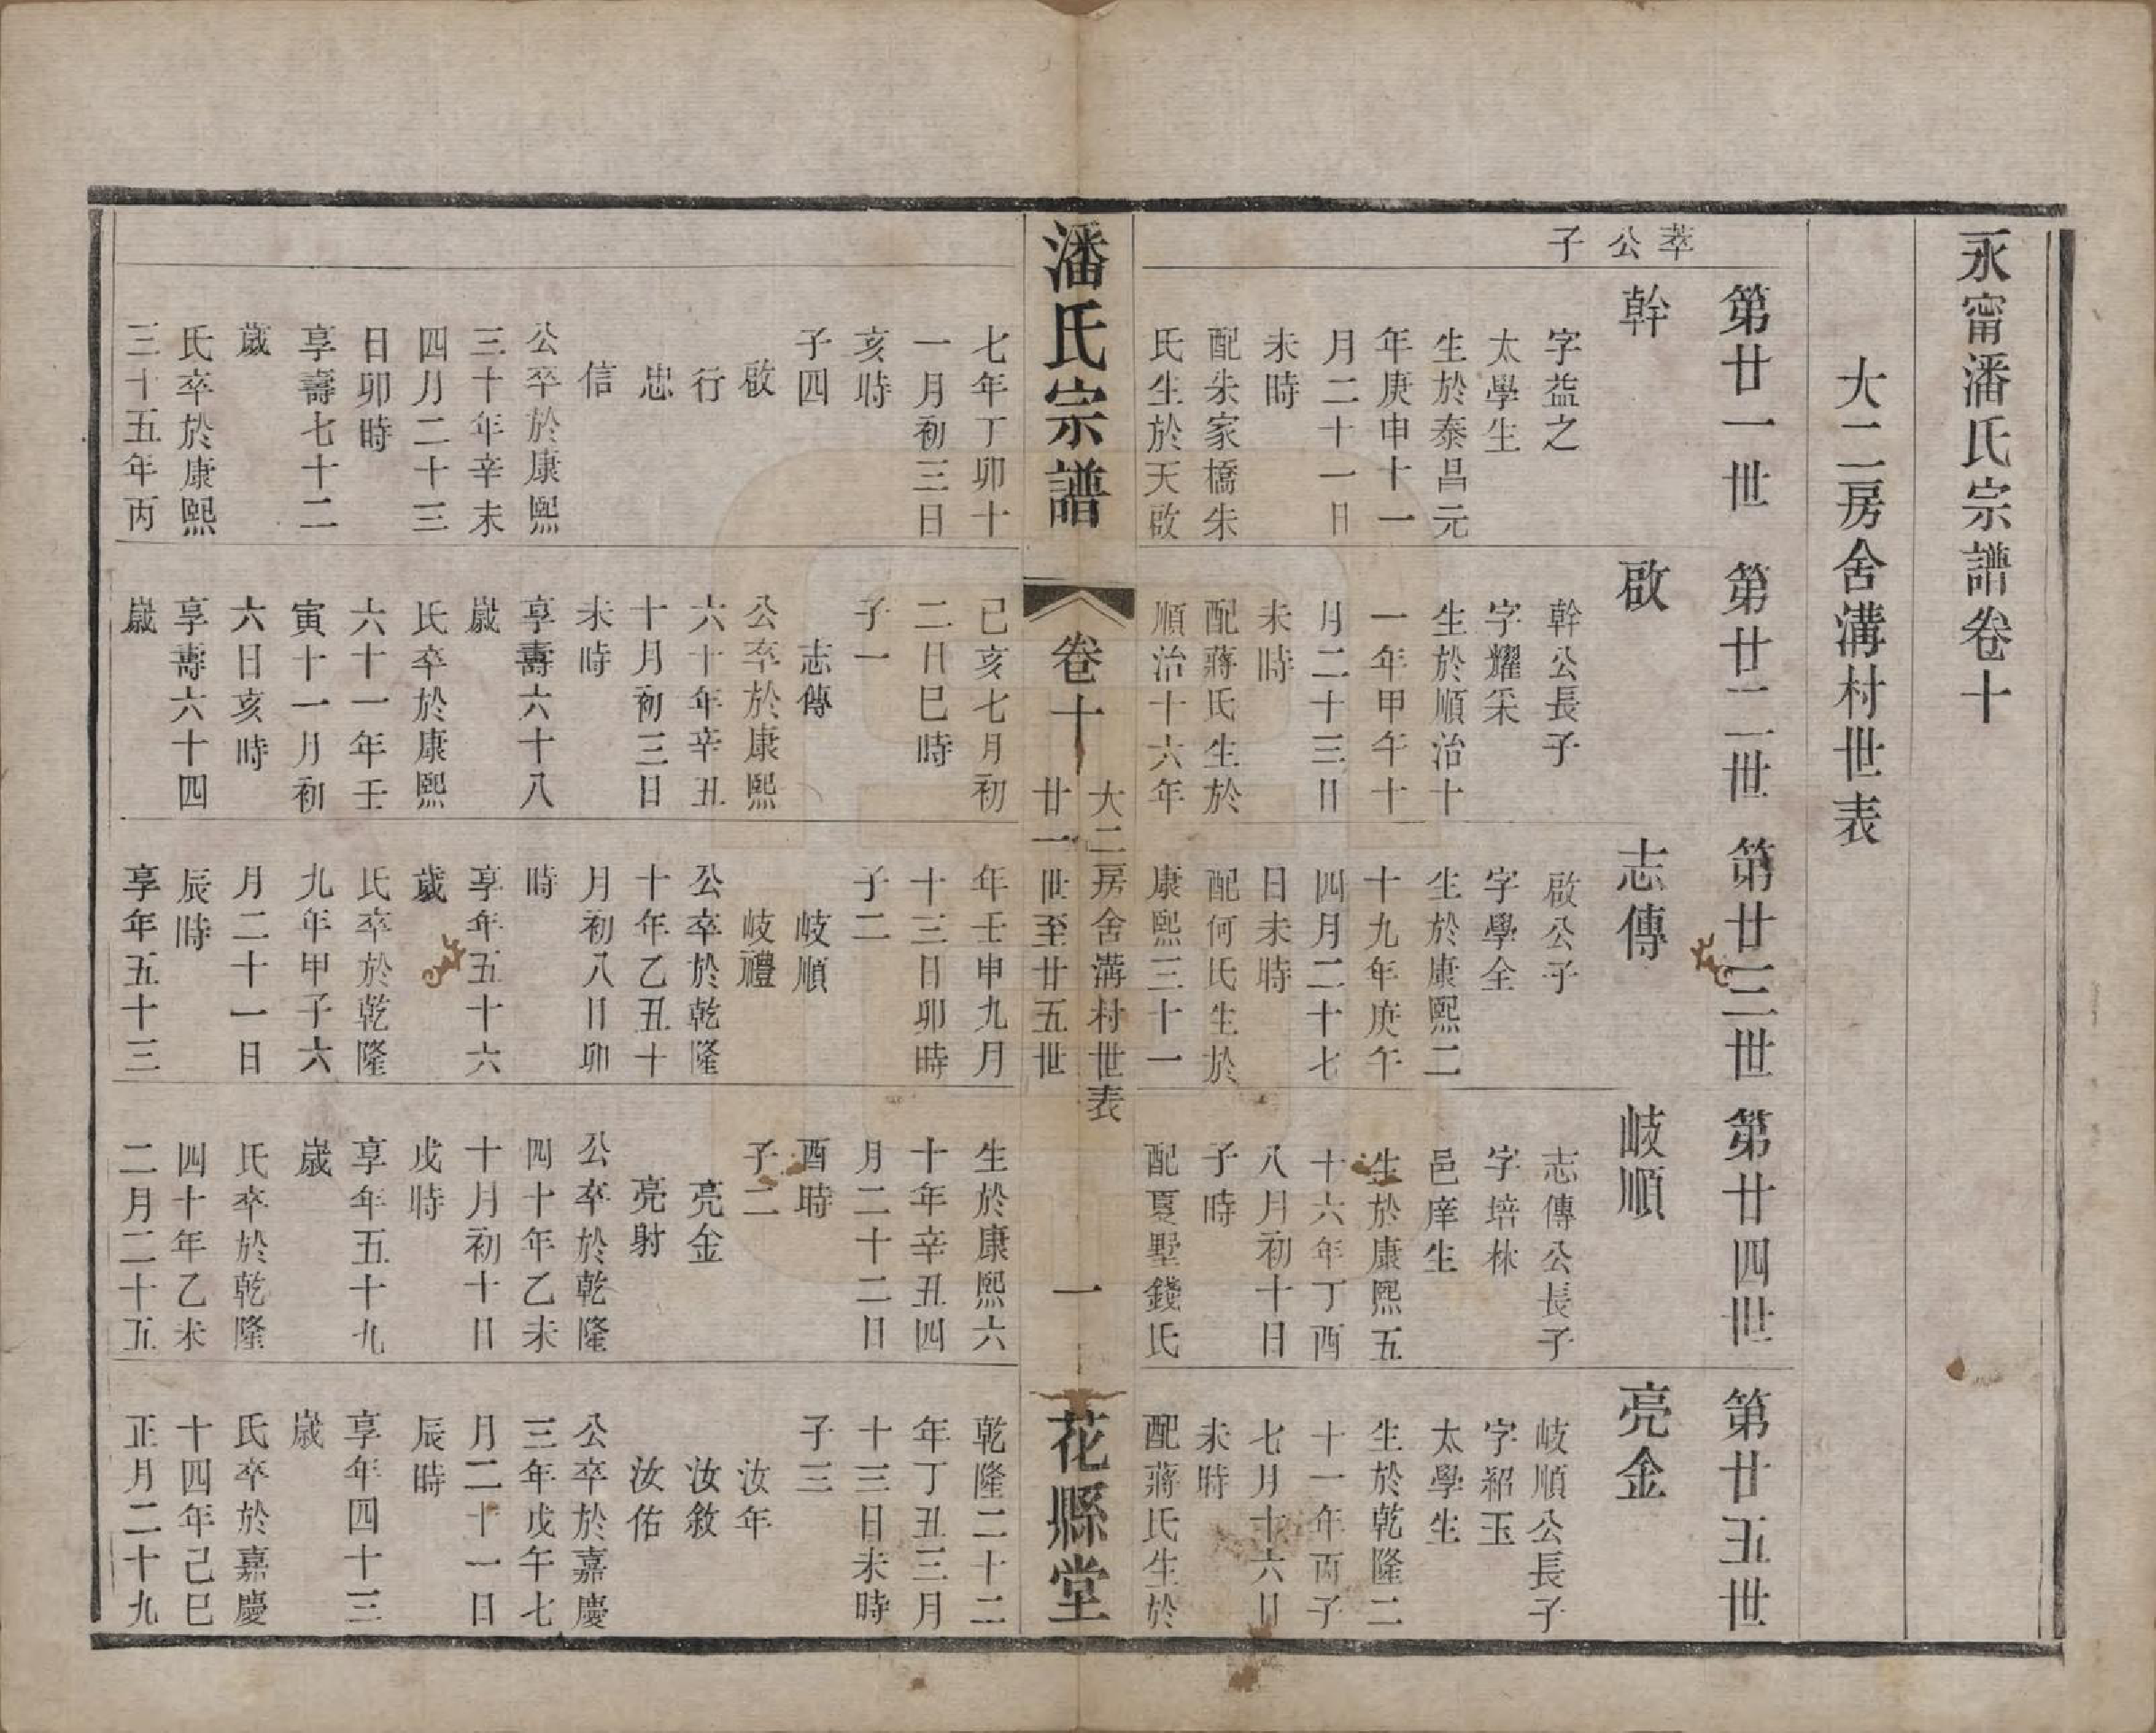 永甯潘氏宗譜卷十
大二房舍溝村世表
萃公子
第廿一世
幹
字益之
太學生
生於泰昌元
年庚申十一
月二十一日
未時
配朱家橋朱
氏生於天啟
七年丁卯十
一月初三日
亥時
子四
啟
行
忠
信
公卒於康熙
三十年辛未
四月二十三
日卯時
享壽七十二
歲
氏卒於康熙
三十五年丙
第廿二世
啟
幹公長子
字耀采
生於順治十
一年甲午十
月二十三日
未時
配蔣氏生於
順治十六年
己亥七月初
二日巳時
子一
志傳
公卒於康熙
六十年辛丑
十月初三日
未時
享壽六十八
歲
氏卒於康熙
六十一年壬
寅十一月初
六日亥時
享壽六十四
歲
第廿三世
志傳
啟公子
字學全
生於康熙二
十九年庚午
四月二十七
日未時
配何氏生於
康熙三十一
年壬申九月
十三日卯時
子二
岐順
岐禮
公卒於乾隆
十年乙丑十
月初八日卯
時
享年五十六
歲
氏卒於乾隆
九年甲子六
月二十一日
辰時
享年五十三
第廿四世
岐順
志傳公長子
字培林
邑庠生
生於康熙五
十六年丁酉
八月初十日
子時
配夏墅錢氏
生於康熙六
十年辛丑四
月二十二日
酉時
子二
亮金
亮射
公卒於乾隆
四十年乙未
十月初十日
戌時
享年五十九
歲
氏卒於乾隆
四十年乙未
二月二十五
第廿五世
亮金
岐順公長子
字紹玉
太學生
生於乾隆二
十一年丙子
七月十六日
未時
配蔣氏生於
乾隆二十二
年丁丑三月
十三日未時
子三
汝年
汝敘
汝佑
公卒於嘉慶
三年戊午七
月二十一日
辰時
享年四十三
歲
氏卒於嘉慶
十四年己巳
正月二十九
潘氏宗譜
卷十
大二房舍溝村世表
廿一世至廿五世
一
花縣堂